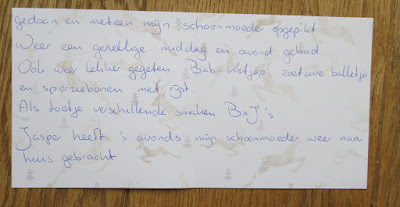 gedaan en meteen mijn schoonmoeder opgepikt.
Weer een gezellige middag en avond gehad
Ook weer lekker gegeten. Babi ketjap, zoetzure balletjes
en sperziebonen met rijst.
Als toetje verschillende smaken B&J's
Jasper heeft 's avonds mijn schoonmoeder weer naar
huis gebracht